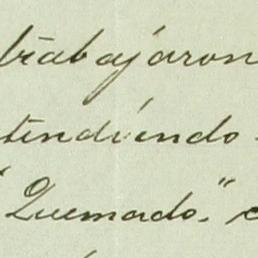 trabajaron
tendiendo
"Quemado."